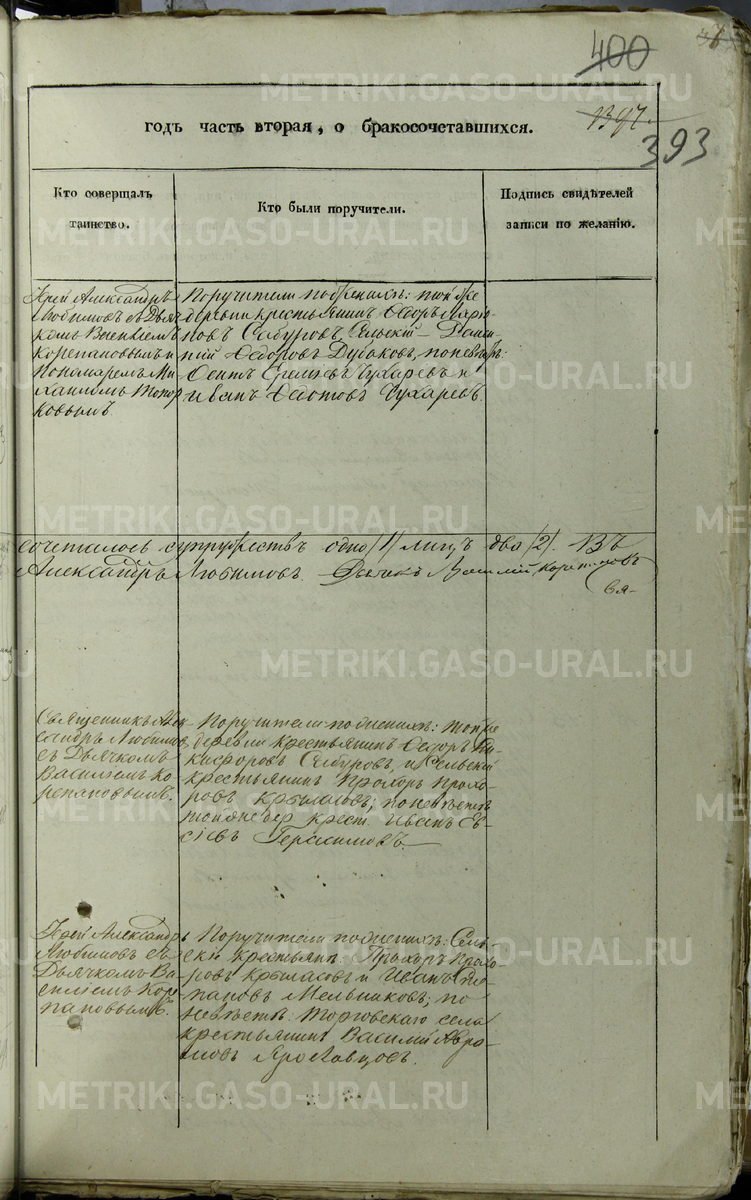 400
1397
393
годъ часть вторая, о бракосочетавшихся.
Кто совершалъ таинство.
Кто были поручители.
Подпись свидѣтелей записи по желанію.
Іерей Александръ
Любимовъ съ Дья
комъ
Корепановымъ и
Пономаремъ Ми
хаиломъ Топор
ковымъ
Поручители по женихѣ: той же
деревни крестьянинъ Ѳедоръ
новъ Сабуровъ, Сельскій
Ѳедоровъ по невѣстѣ:
Чухаревъ и
Иванъ Ѳедотовъ Чухаревъ.
сочеталось супружествъ одно /1/ лицъ два /2/. Въ
Александръ Любимовъ. Дьячекъ Василій Корепановъ
Священникъ Алек
сандръ Любимовъ,
съ Дьячкомъ
Василіемъ Ко
репановымъ.
Поручители по женихѣ: той же
деревни крестьянинъ Ѳедоръ Ни
кифоровъ Сабуровъ, и Сельскій
крестьянинъ Прохоръ Прохо
ровъ Крыласовъ; по невѣстѣ
той же дер. крест. Иванъ Ев
сіевъ Герасимовъ.
Іерей Александръ
Любимовъ съ
Дьячкомъ Ва
силіемъ Коре
пановымъ.
Поручители по женихѣ: Сель
скій крестьянинъ Прохоръ Прохо
ровъ Крыласовъ и Иванъ Сте
пановъ Мельниковъ; по
невѣстѣ: Торговскаго села
крестьянинъ Василій Авра
мовъ Ярославцовъ.
METRIKI.GASO-URAL.RU